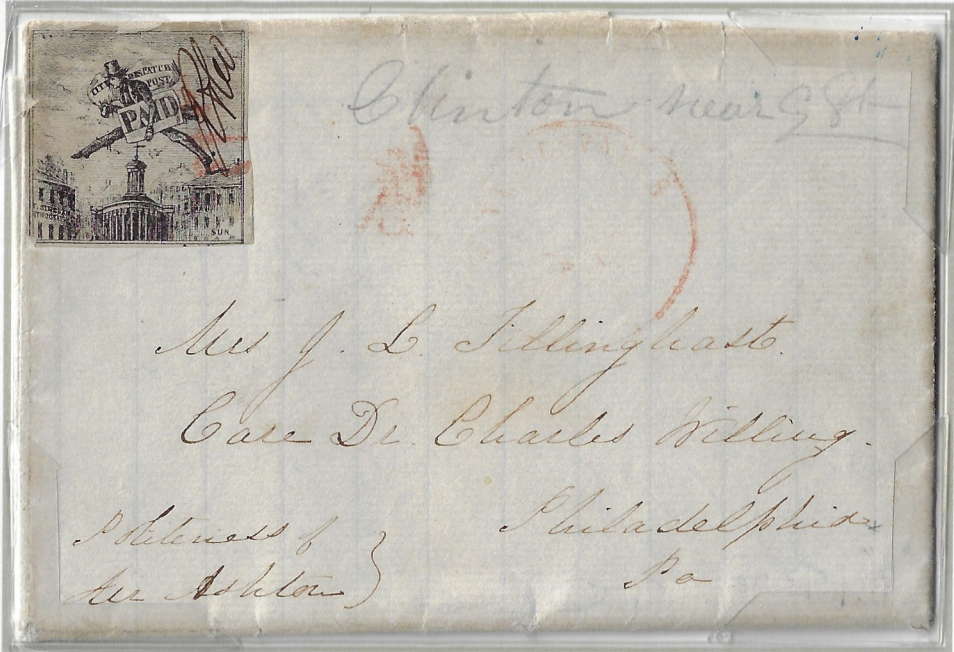 CITY DESPATCH
POST
PAID
SUN
Clinton near 9 St
Mrs J. L. Tillinghast.
Care Dr. Charles Willing.
Philadelphia
Pa
Politeness of
Mr Ashton